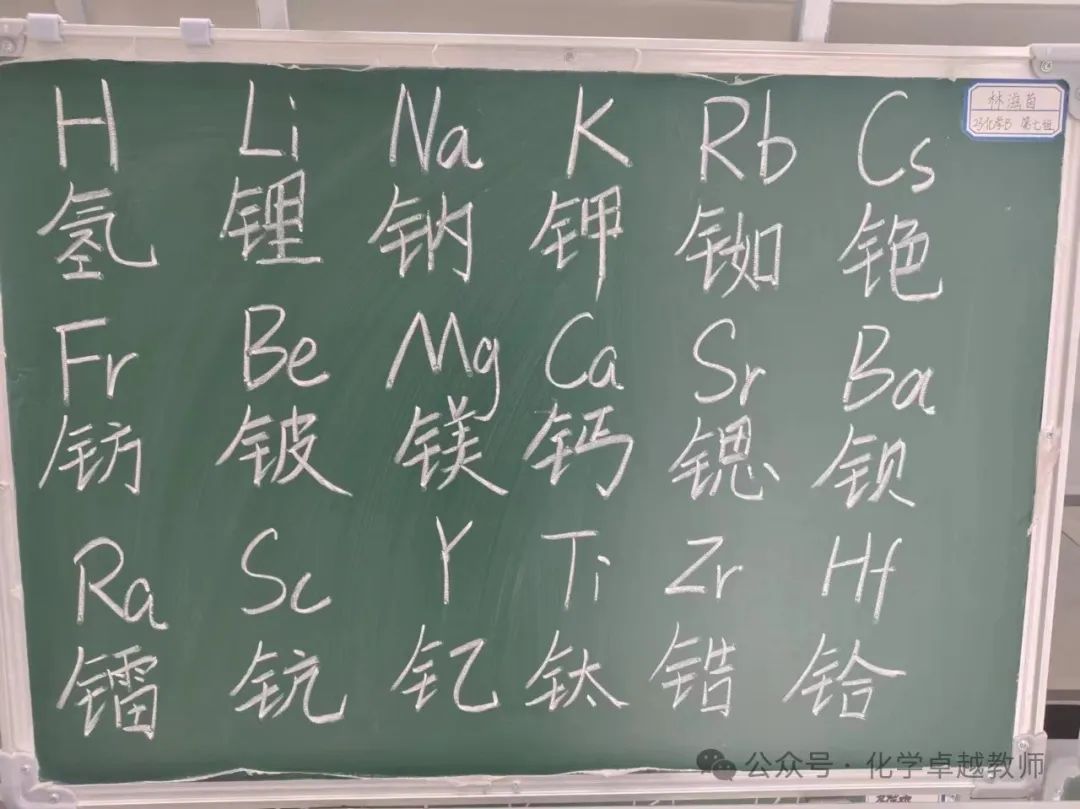 H Li Na K Rb Cs
氢 锂 钠 钾 铷 铯
Fr Be Mg Ca Sr Ba
钫 铍 镁 钙 锶 钡
Ra Sc Y Ti Zr Hf
镭 钪 钇 钛 锆 铪
23化学B 第七组
公众号·化学卓越教师